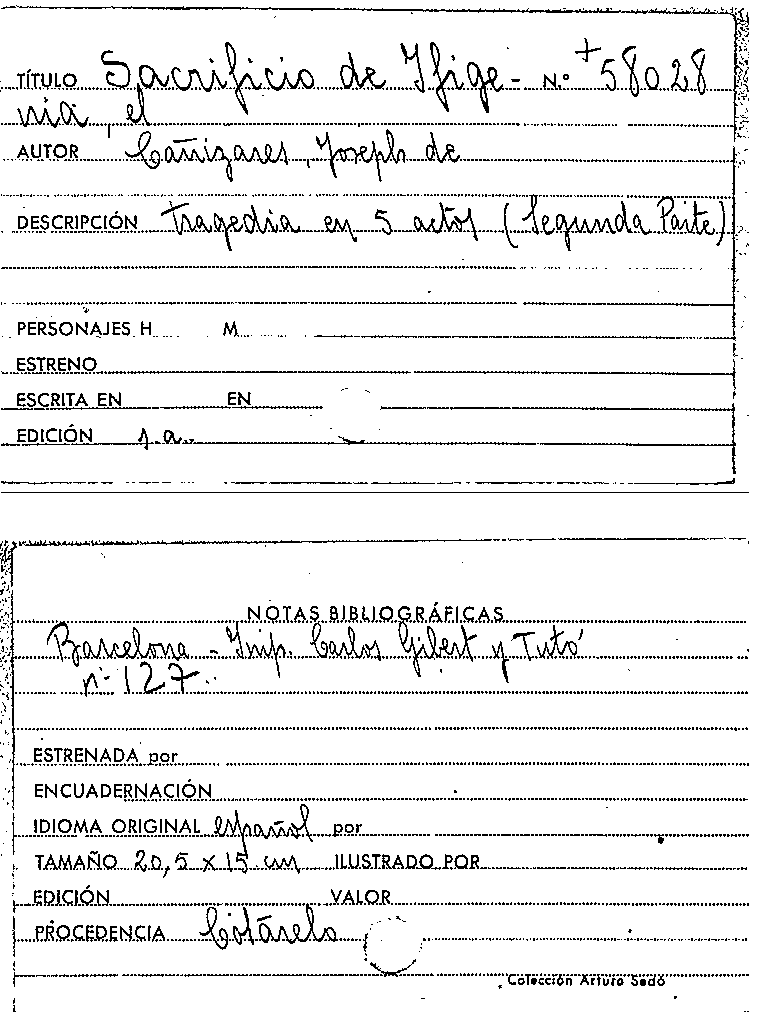 TÍTULO Sacrificio de Ifige- N.º +58028
nia, el
AUTOR Cañizares, Joseph de
DESCRIPCIÓN tragedia en 5 actos (Segunda Parte)
PERSONAJES H M
ESTRENO
ESCRITA EN EN
EDICIÓN s.a.
NOTAS BIBLIOGRÁFICAS
Barcelona - Imp. Carlos Gibert y Tutó
nº 127.
ESTRENADA por
ENCUADERNACIÓN
IDIOMA ORIGINAL español por
TAMAÑO 20,5 x 15 cm ILUSTRADO POR
EDICIÓN VALOR
PROCEDENCIA Cotarelo
Colección Arturo Sedó